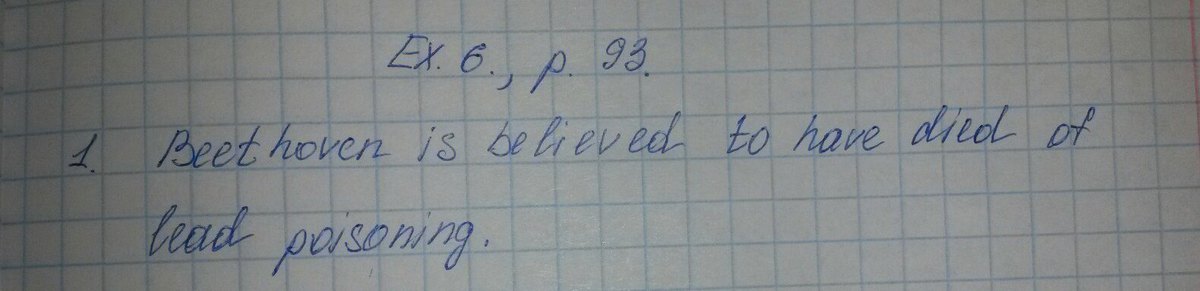 Ex. 6., p. 93.
1. Beethoven is believed to have died of
lead poisoning.